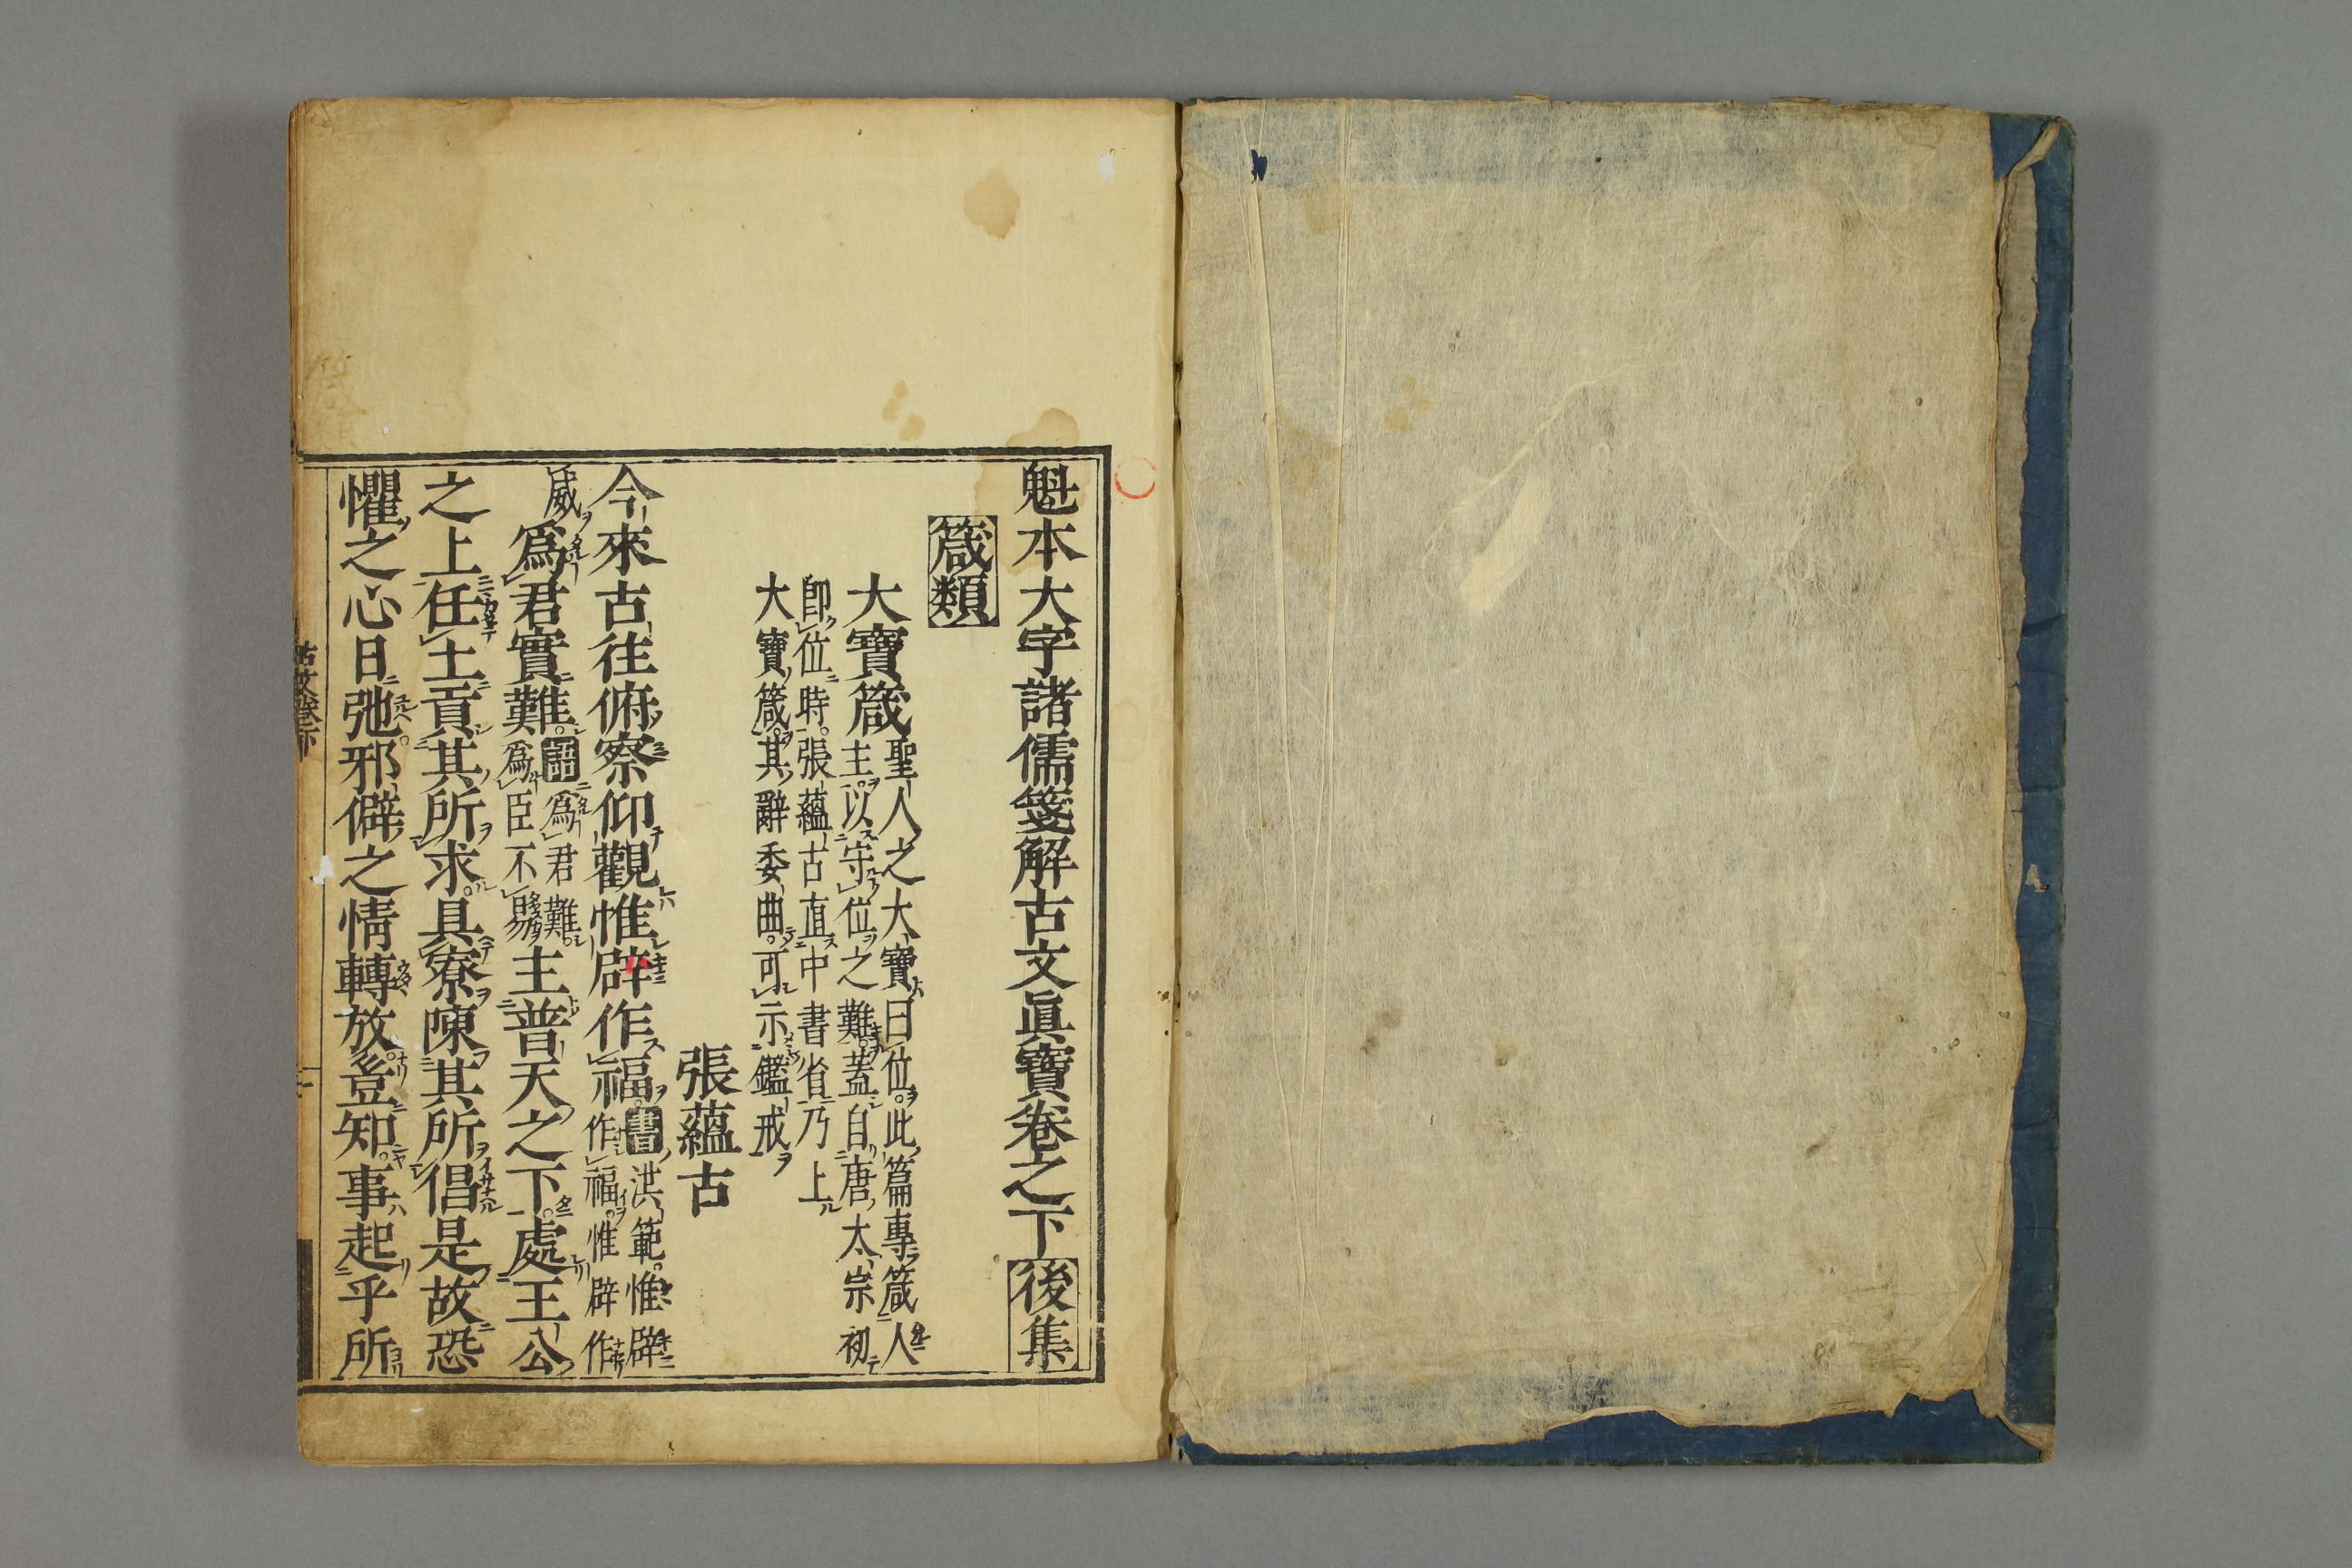 魁本大字諸儒箋解古文眞寶卷之下 後集
箴類
大寶箴 聖人之大寶曰位此篇專箴人
主以守位之難蓋自唐太宗初
卽位時張蘊古直中書省乃上
大寶箴其辭委曲可示鑑戒
張蘊古
今來古往俯察仰觀惟辟作福 書洪範惟辟
作福惟辟作
威 爲君實難 語爲君難
爲臣不易 主普天之下處王公
之上任土貢其所求具寮陳其所倡是故恐
懼之心日弛邪僻之情轉放豈知事起乎所
古文卷下